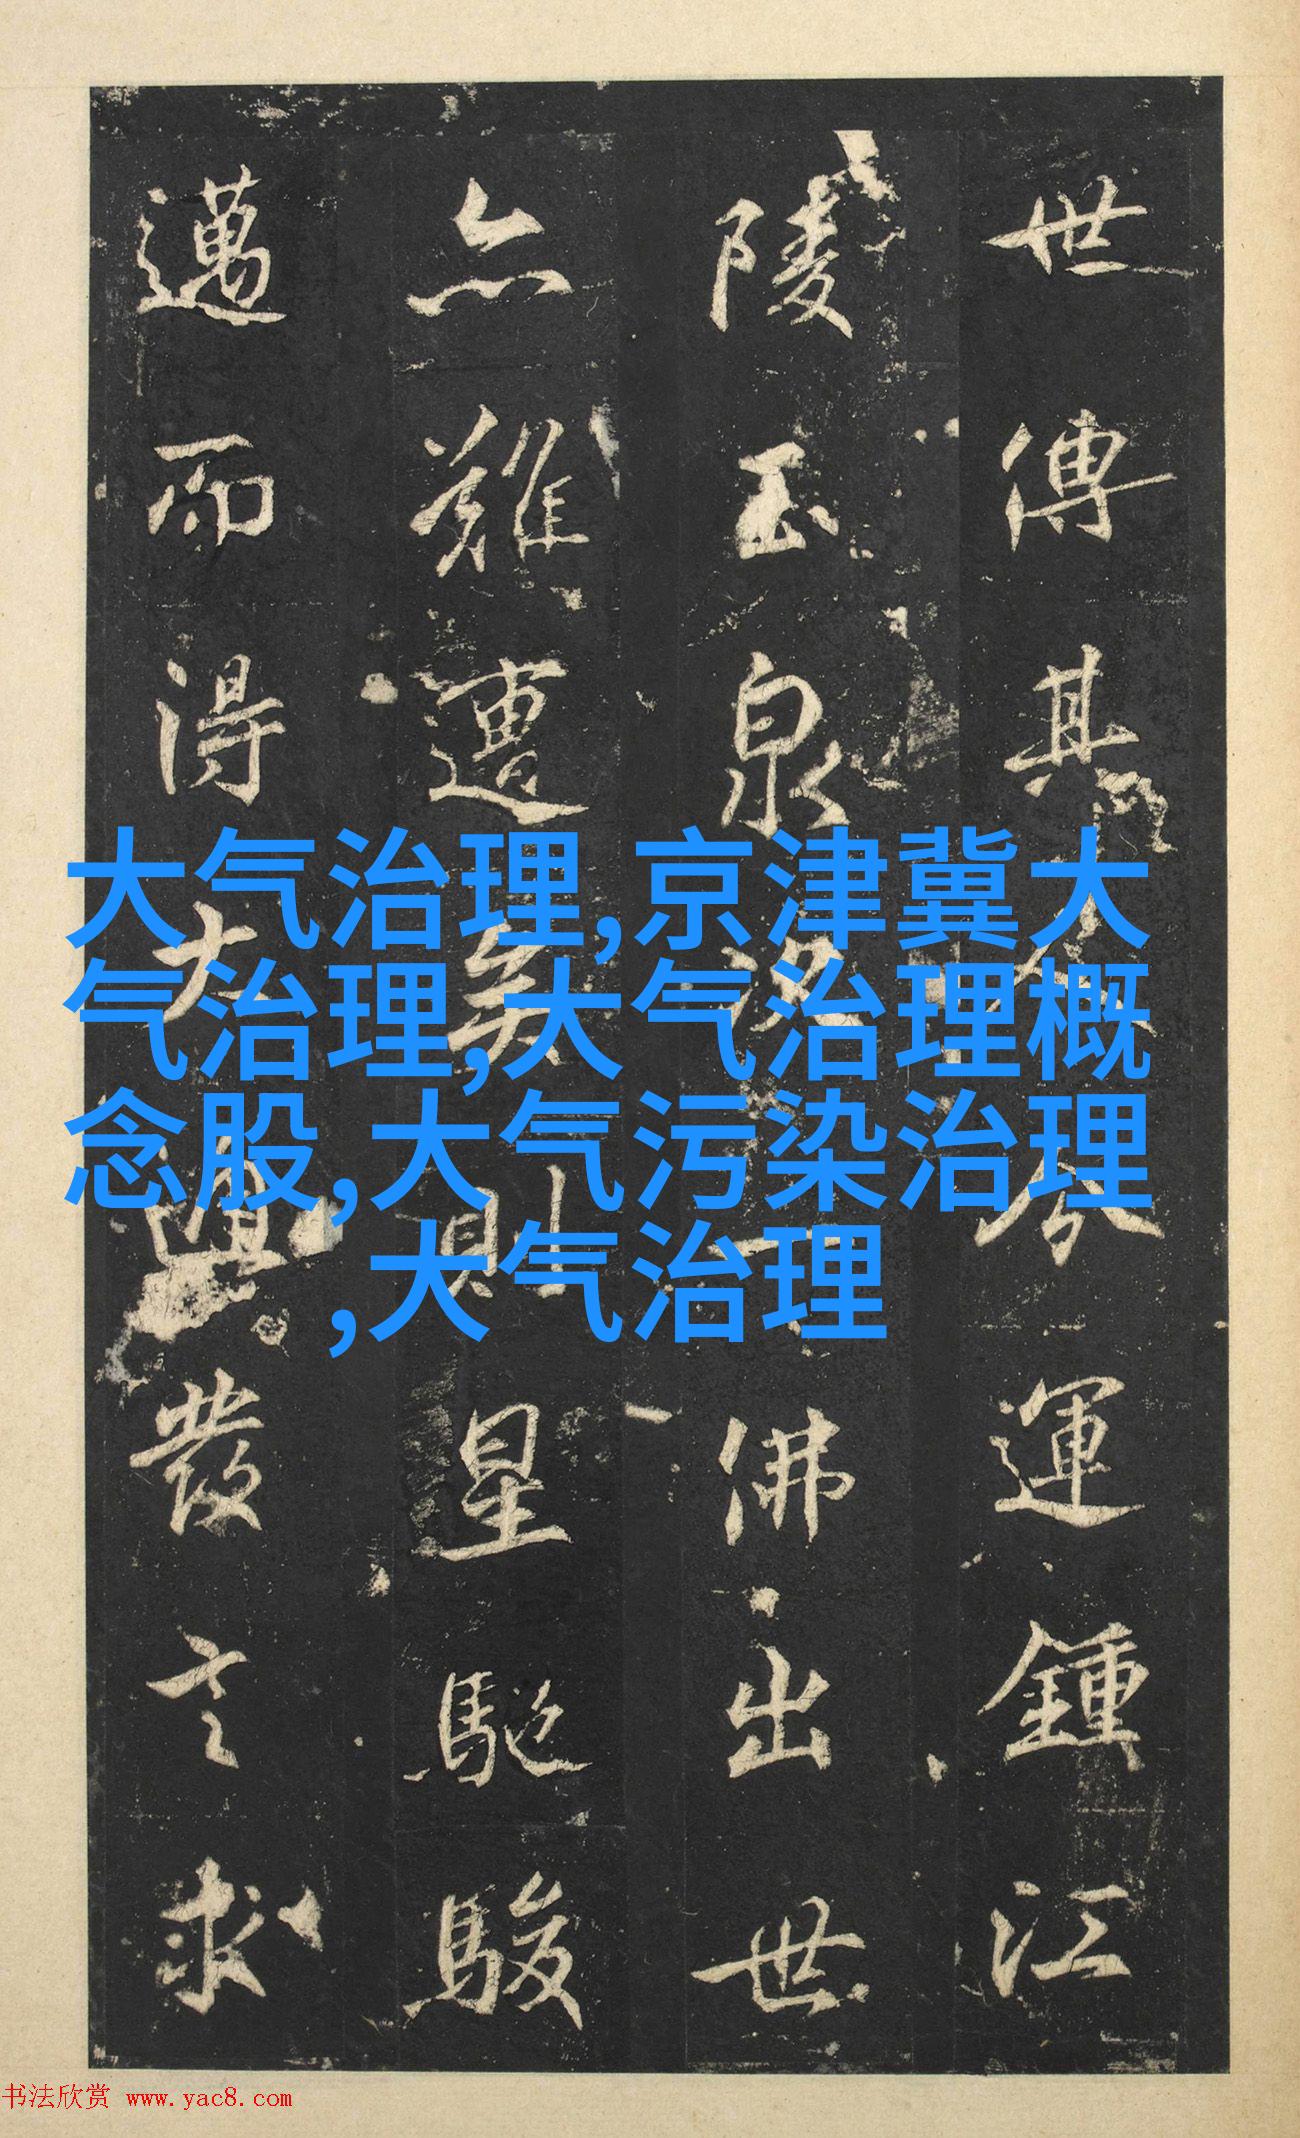 世傳其今運鍾江
陵玉泉佛出世
亦難遭矣則星馳駿
邁而得大發言求
大气治理,京津冀大
气治理,大气治理概
念股,大气污染治理
,大气治理
书法欣赏 www.yac8.com